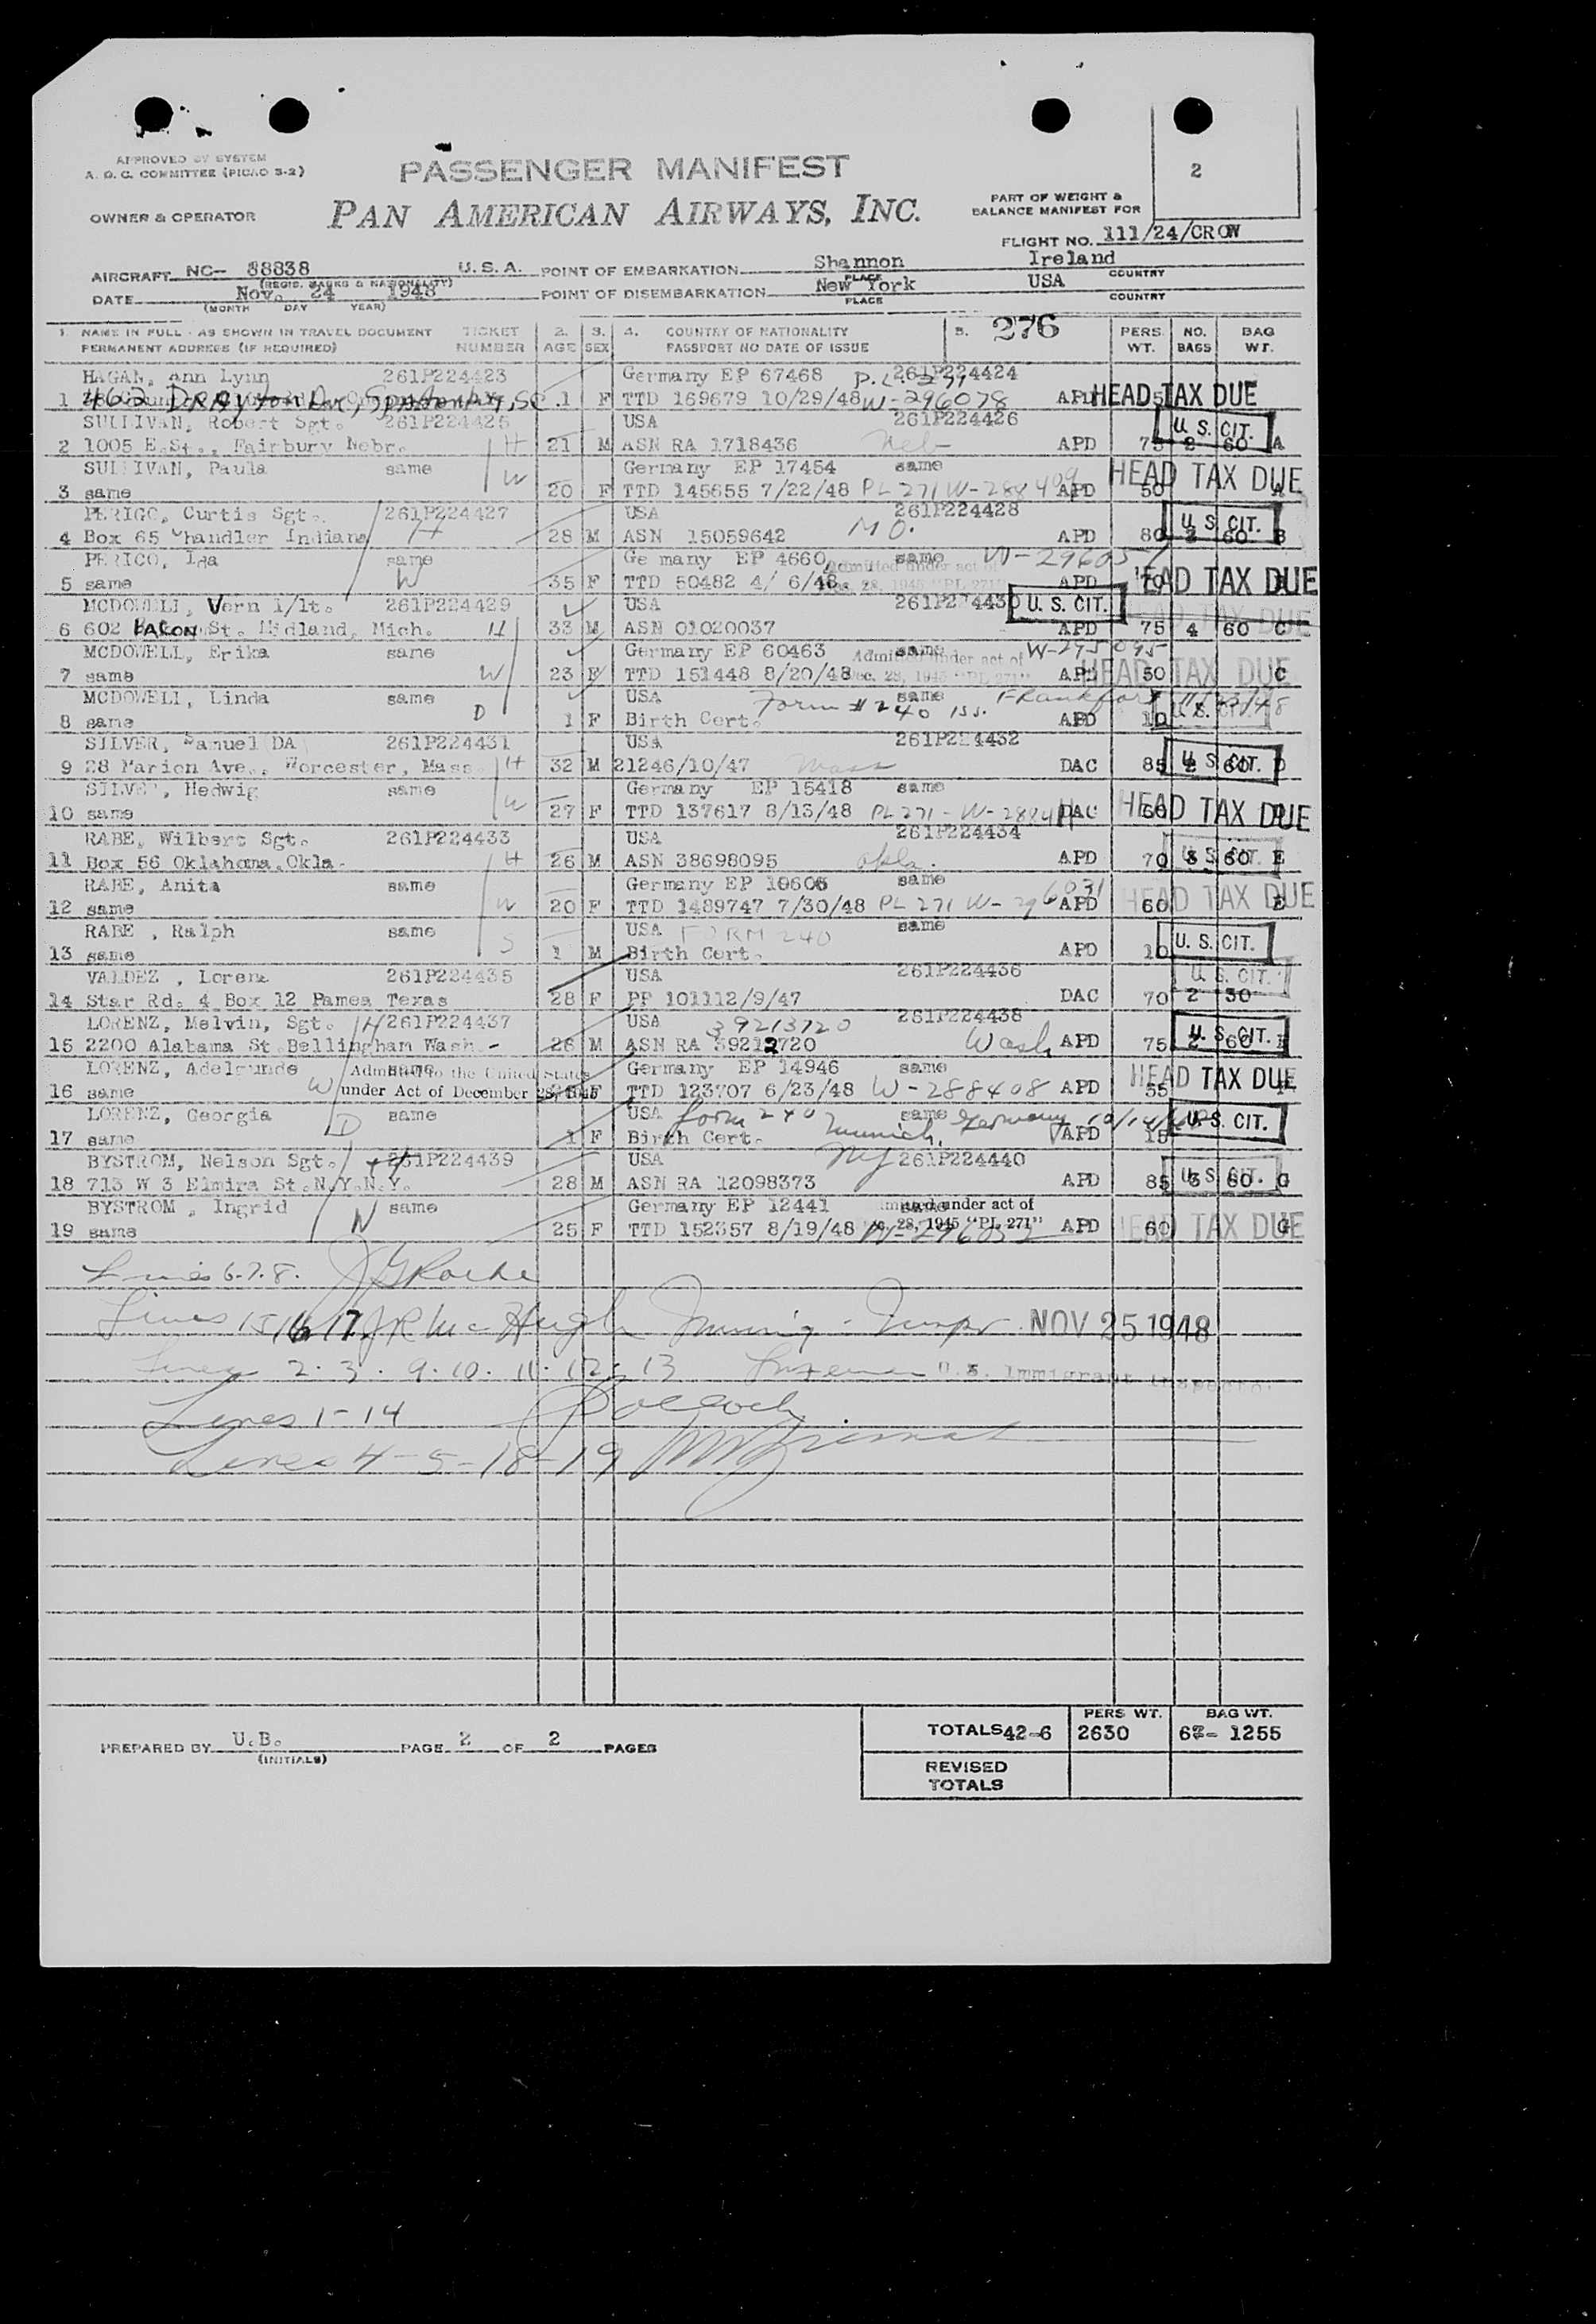 APPROVED BY SYSTEM
A. O. C. COMMITTEE (PICAO 3-2)
PASSENGER MANIFEST
2
OWNER & OPERATOR
PAN AMERICAN AIRWAYS, INC.
PART OF WEIGHT &
BALANCE MANIFEST FOR
FLIGHT NO. 111/24/CROW
AIRCRAFT NC- 88838 U.S.A. POINT OF EMBARKATION Shannon Ireland
(REGIS. MARKS & NATIONALITY) PLACE COUNTRY
DATE Nov. 24 1948 POINT OF DISEMBARKATION New York USA
(MONTH DAY YEAR) PLACE COUNTRY
1. NAME IN FULL - AS SHOWN IN TRAVEL DOCUMENT TICKET 2. 3. 4. COUNTRY OF NATIONALITY 5. 276 PERS. NO. BAG
PERMANENT ADDRESS (IF REQUIRED) NUMBER AGE SEX PASSPORT NO DATE OF ISSUE WT. BAGS WT.
HAGAN, Ann Lynn 261P224423 Germany EP 67468 P.L. 271 261P224424
1 462 DRAyton Ave, Spartanburg, SC 1 F TTD 169679 10/29/48 W-296078 APD HEAD TAX DUE
SULLIVAN, Robert Sgt. 261P224425 USA 261P224426 U.S. CIT.
2 1005 E.St., Fairbury Nebr. H 21 M ASN RA 1718436 Neb- APD 75 2 60 A
SULLIVAN, Paula same W Germany EP 17454 same HEAD TAX DUE
3 same 20 F TTD 145655 7/22/48 PL 271 W-288409 APD 50 A
PERIGO, Curtis Sgt. 261P224427 USA 261P224428 U.S. CIT.
4 Box 65 Chandler Indiana H 28 M ASN 15059642 MO. APD 80 60 B
PERICO, Ida same W Ge many EP 4660 same W-29605
5 same 35 F TTD 50482 4/ 6/48 Admitted under act of Dec. 28, 1945 "PL 271" APD 70 HEAD TAX DUE
MCDOWELL, Vern 1/lt. 261P224429 USA 261P224430 U. S. CIT.
6 602 EACON St. Midland, Mich. H 33 M ASN 01020037 APD 75 4 60 C HEAD TAX DUE
MCDOWELL, Erika same Germany EP 60463 same W-295095
7 same W 23 F TTD 151448 8/20/48 Admitted under act of Dec. 28, 1945 "PL 271" APD 50 C HEAD TAX DUE
MCDOWELL, Linda same USA same Form #240 iss. Frankfort 11/23/48
8 same D 1 F Birth Cert. APD 10 U.S. CIT.
SILVER, Samuel DA 261P224431 USA 261P224432
9 28 Marion Ave., Worcester, Mass. H 32 M 21246/10/47 Mass DAC 85 2 60 D U.S. CIT.
SILVER, Hedwig same Germany EP 15418 same
10 same W 27 F TTD 137617 8/13/48 PL 271 - W-28841 DAC HEAD TAX DUE
RABE, Wilbert Sgt. 261P224433 USA 261P224434
11 Box 56 Oklahoma,Okla- H 26 M ASN 38698095 Okla. APD 70 3 60 E U.S. CIT.
RABE, Anita same Germany EP 10606 same
12 same W 20 F TTD 1489747 7/30/48 PL 271 W-296031 APD 60 E HEAD TAX DUE
RABE , Ralph same USA FORM 240 same
13 same S 1 M Birth Cert. APD 10 U.S. CIT.
VALDEZ , Lorenz 261P224435 USA 261P224436 U.S. CIT.
14 Star Rd. 4 Box 12 Pamea Texas 28 F PP 101112/9/47 DAC 70 2 30
LORENZ, Melvin, Sgt. H 261P224437 USA 39213720 261P224438
15 2200 Alabama St Bellingham Wash.- 26 M ASN RA 39212720 Wash APD 75 2 60 U.S. CIT.
LORENZ, Adelgunde same Germany EP 14946 same HEAD TAX DUE
16 same W Admitted to the United States under Act of December 28, 1945 F TTD 123707 6/23/48 W-288408 APD 55
LORENZ, Georgia same USA form 240 same
17 same D 1 F Birth Cert. Munich, Germany APD 15 U.S. CIT.
BYSTROM, Nelson Sgt. H 261P224439 USA NY 261P224440
18 713 W 3 Elmira St.N.Y.N.Y. 28 M ASN RA 12098373 APD 85 3 60 G U.S. CIT.
BYSTROM , Ingrid same Germany EP 12441 same
19 same W 25 F TTD 152357 8/19/48 Admitted under act of Dec. 28, 1945 "PL 271" W-296032 APD 60 G HEAD TAX DUE
Lines 6.7.8. J G Roche
Lines 15 16 17. J R McHugh Immig. Inspr NOV 25 1948
Lines 2. 3. 9. 10. 11. 12. 13 U.S. Immigrant Inspector
Lines 1-14
Lines 4-5-18-19
PREPARED BY U.B. PAGE 2 OF 2 PAGES
(INITIALS)
PERS WT. BAG WT.
TOTALS 42-6 2630 62- 1255
REVISED
TOTALS